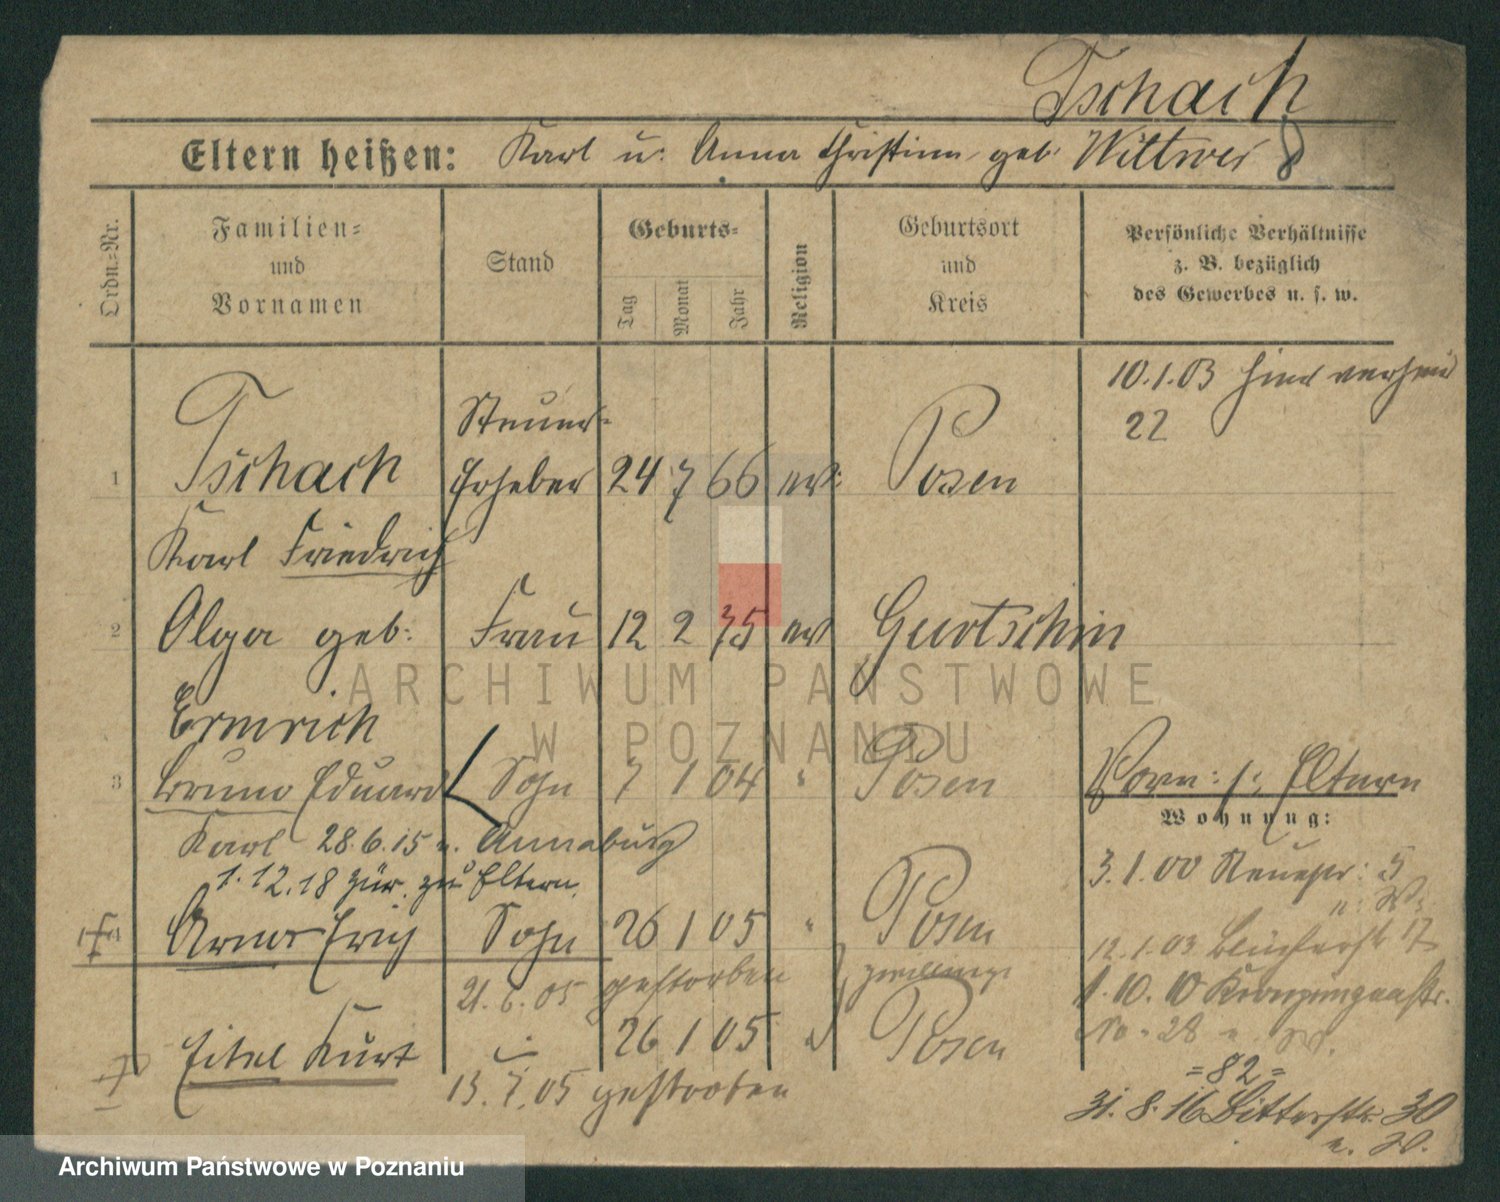 Tschach
Eltern heißen: Karl u. Anna Christine geb. Wittwer
Ordn.=Nr.
Familien= und Vornamen
Stand
Geburts=
Tag Monat Jahr
Religion
Geburtsort und Kreis
Persönliche Verhältnisse
z. B. bezüglich
des Gewerbes u. s. w.
10.1.03 hier
22
1 Tschach Steuer=Erheber 24 7 66 ev: Posen
Karl Friedrich
2 Olga geb: Frau 12 2 75 ev Gurtschin
Ermrich
3 Bruno Eduard Sohn 7 1 04 " Posen
Karl 28.6.15 n. Annaburg
1.12.18 zur. zu Eltern.
Arno Erich Sohn 26 1 05 " Posen
21.6.05 gestorben
Zwillinge
Eitel Kurt 26 1 05 Posen
13.7.05 gestorben
Eltern
Wohnung:
3.1.00 5
12.1.03 Blücherstr 17
1.10.10
No 28
=82=
31.8.16 Bitterstr. 30
ARCHIWUM PAŃSTWOWE
W POZNANIU
Archiwum Państwowe w Poznaniu